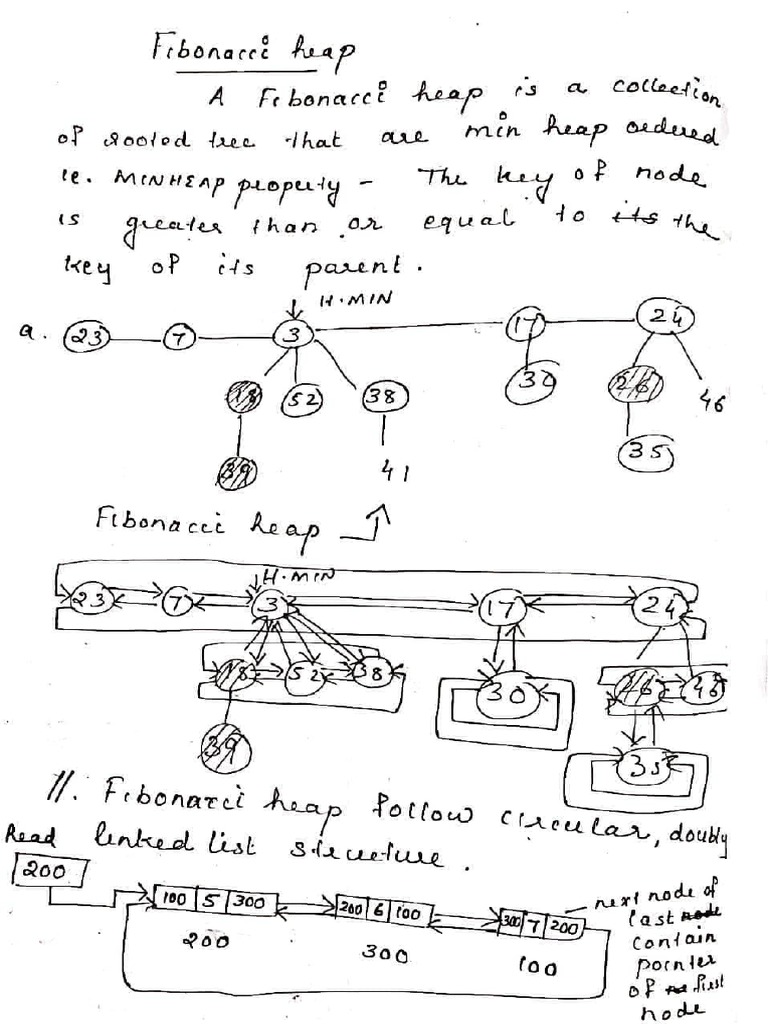 Fibonacci heap
A Fibonacci heap is a collection
of rooted tree that are min heap ordered
ie. MINHEAP property - The key of node
is greater than or equal to its the
key of its parent.
H.MIN
a. 23 7 3 17 24
18 52 38 30 26 46
39 41 35
Fibonacci heap
H.MIN
23 7 3 17 24
18 52 38 30 26 46
39 35
//. Fibonacci heap follow circular, doubly
linked list structure.
Read
200
100 5 300 200 6 100 300 7 200
200 300 100
next node of
last node
contain
pointer
of first
node